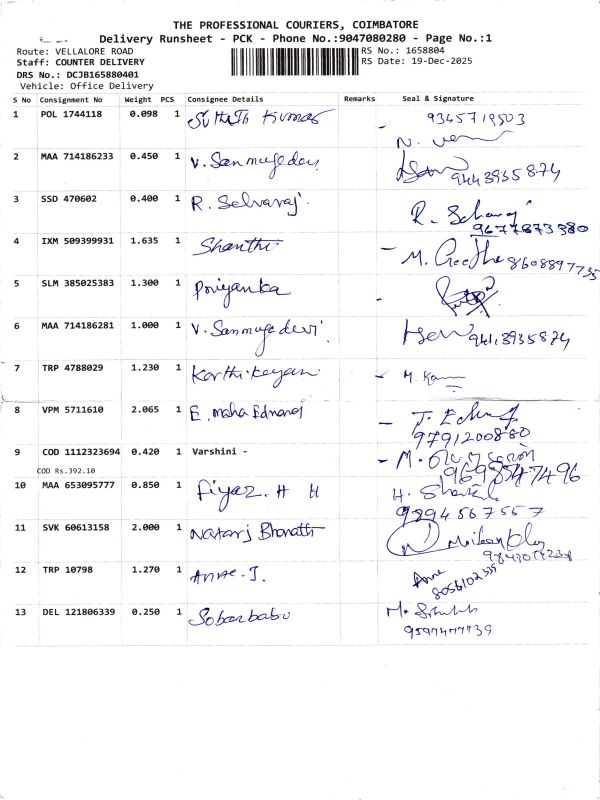 THE PROFESSIONAL COURIERS, COIMBATORE
Delivery Runsheet - PCK - Phone No.:9047080280 - Page No.:1
Route: VELLALORE ROAD
RS No.: 1658804
Staff: COUNTER DELIVERY
RS Date: 19-Dec-2025
DRS No.: DCJB165880401
Vehicle: Office Delivery
S No Consignment No Weight PCS Consignee Details Remarks Seal & Signature
1 POL 1744118 0.098 1 Kumar 9345719503
2 MAA 714186233 0.450 1 V. Sanmugadevi 9443935874
3 SSD 470602 0.400 1 R. Selvaraj. R.
9677873380
4 IXM 509399931 1.635 1 Shanthi - M. Geetha 8608897735
5 SLM 385025383 1.300 1 Priyanka -
6 MAA 714186281 1.000 1 V. Sanmugadevi
7 TRP 4788029 1.230 1 Karthikeyan - M.
8 VPM 5711610 2.065 1 E. maha - J.
9791200880
9 COD 1112323694 0.420 1 Varshini - - M.
COD Rs.392.10
9698547496
10 MAA 653095777 0.850 1 Fiyaz. H H H.
9894567557
11 SVK 60613158 2.000 1 Nataraj Bharath
12 TRP 10798 1.270 1 Anne. J. Anne
13 DEL 121806339 0.250 1 Sobanbabu M.
9597477739